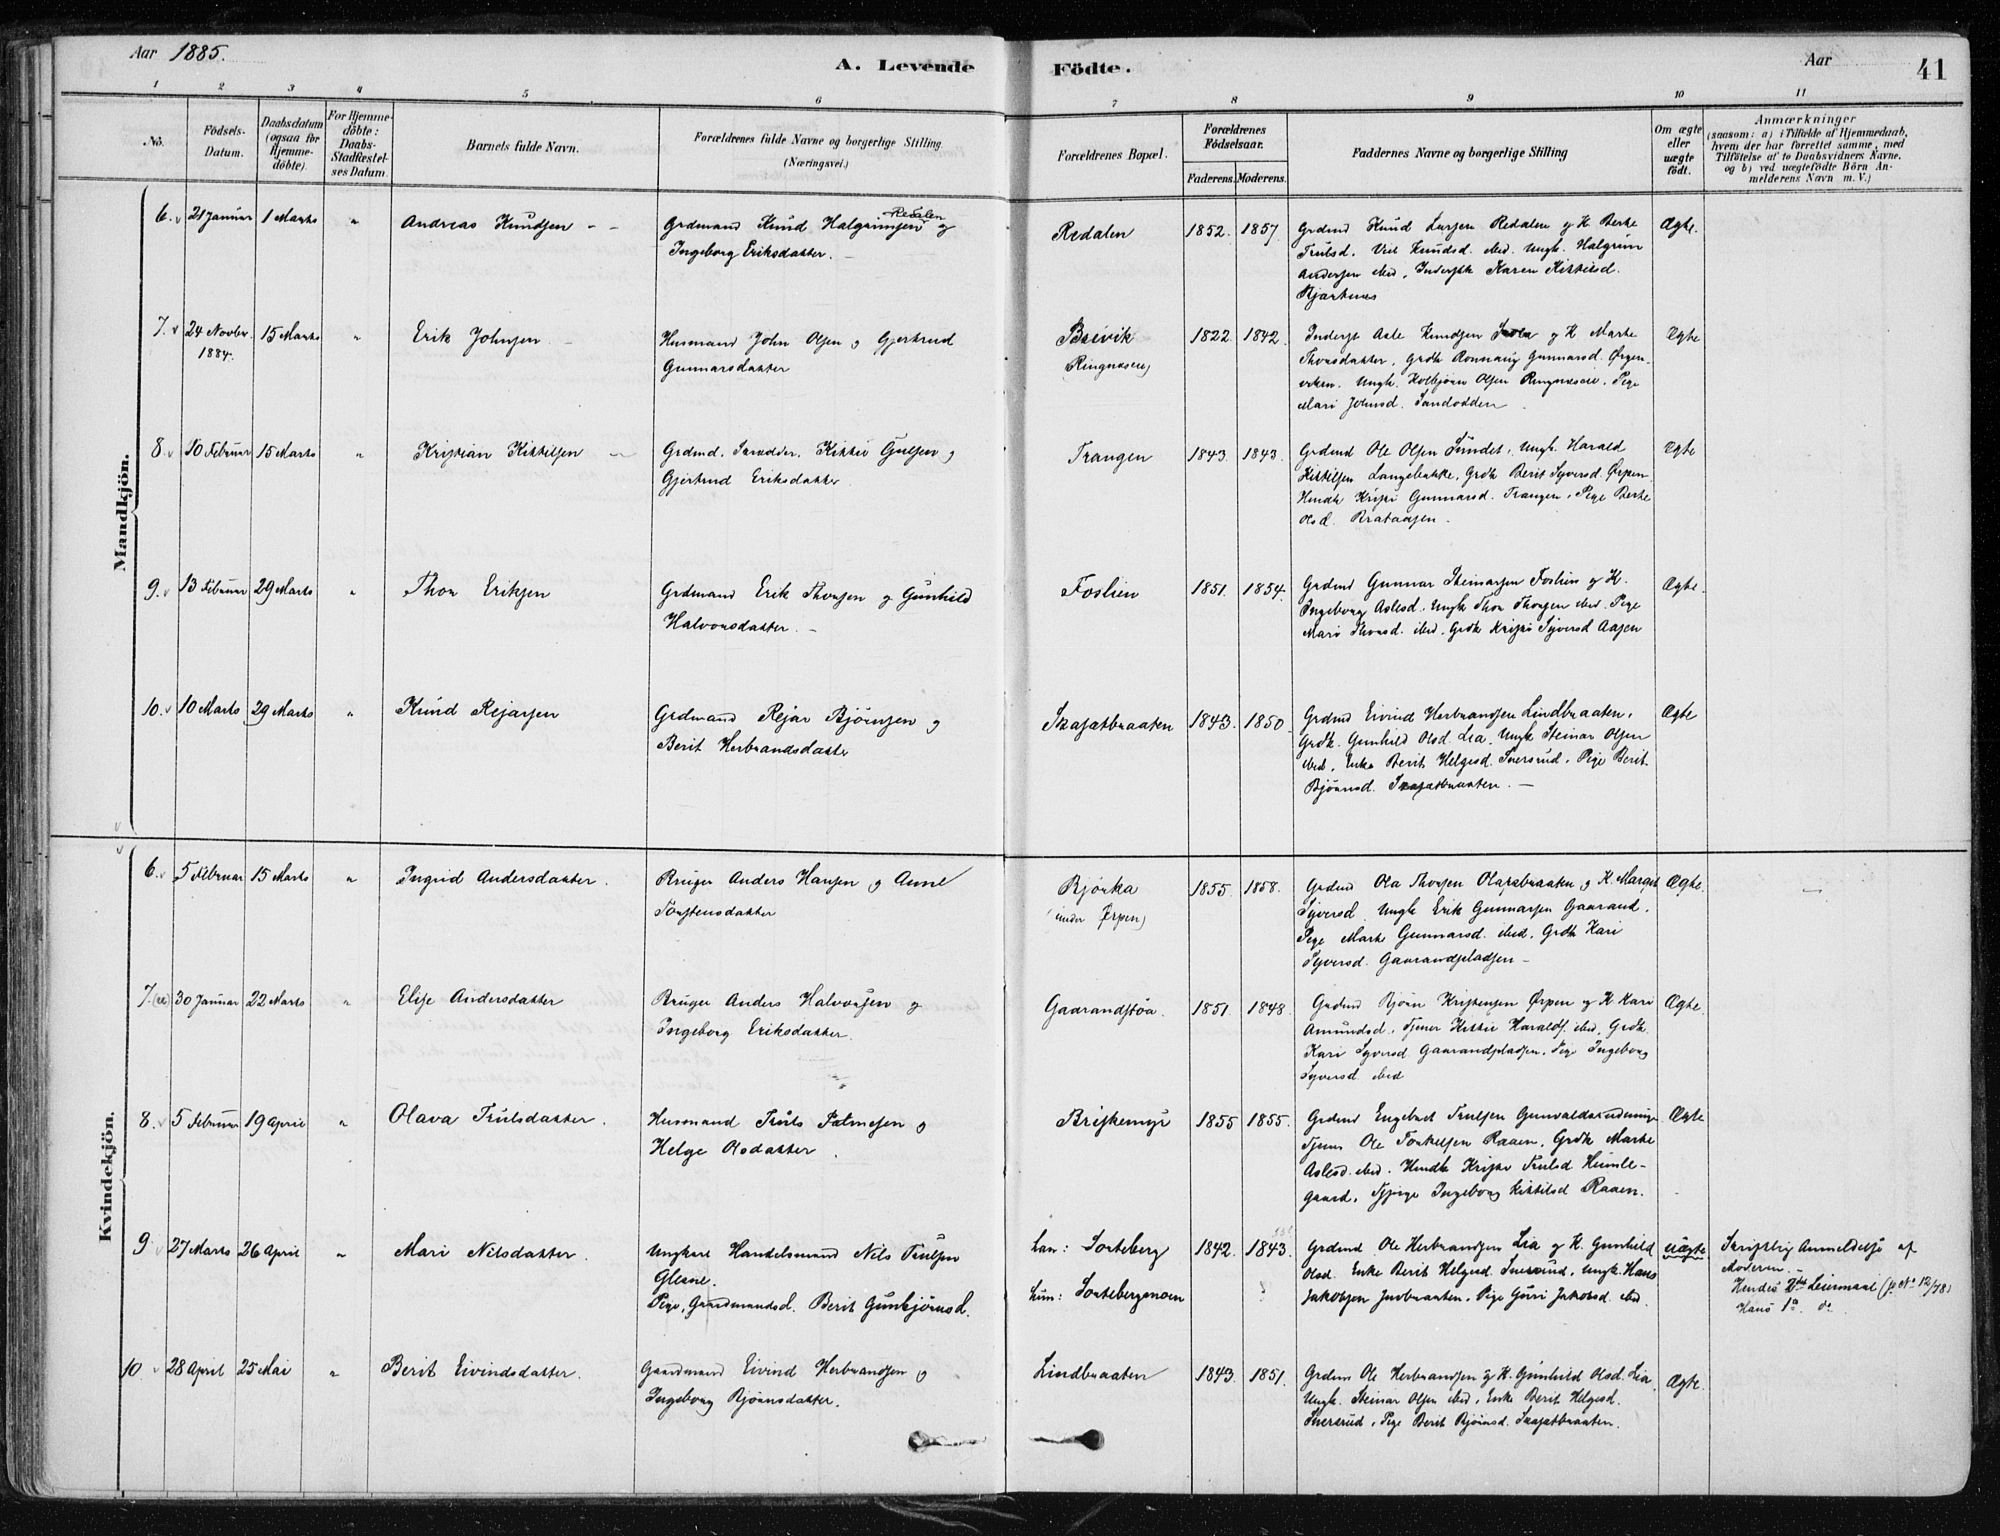 Aar 1885.
A. Levende Födte.
Aar
41
1 2 3 4 5 6 7 8 9 10 11
No.
Födsels-
Datum.
Daabsdatum
(ogsaa for
Hjemme-
döbte)
For Hjemme-
döbte:
Daabs-
Stadfæstel-
ses Datum.
Barnets fulde Navn.
Forældrenes fulde Navne og borgerlige Stilling
(Næringsvei.)
Forældrenes Bopæl.
Forældrenes
Födselsaar.
Faderens. Moderens.
Faddernes Navne og borgerlige Stilling
Om ægte
eller
uægte
födt.
Anmærkninger
(saasom: a) i Tilfælde af Hjemmedaab,
hvem der har forrettet samme, med
Tilföielse af to Daabsvidners Navne,
og b) ved uægtefödte Börn An-
melderens Navn m. V.)
Mandkjön.
6. 21 Januar 1 Marts " Andreas Knudsen - -
Grdmand Knud Halgrimsen Redalen og
Ingeborg Eriksdatter. -
Redalen 1852. 1857.
Grdmd Knud Larsen Redalen og K. Berte
Trulsd. Knudsd. ibid. Ungk. Halgrim
Andersen ibid, Karen Kittilsd.
Bjerknes
Ægte.
7. 24 Novbr. 15 Marts " Erik Johnsen -
1884.
Husmand John Olsen og Gjertrud
Gunnarsdatter
Breivik 1822. 1842.
(Ringnæseie)
Inderst Asle Knudsen og K Marte
Thorsdatter, Grdk Ronnaug Gunnarsd. Ørgen-
viken. Ungk. Kolbjörn Olsen Ringnæseie. Pige
Mari Johnsd. Sandodden
Ægte
8. 10 Februar 15 Marts " Kristian Kittilsen -
Grdmd. Skrædder. Kittil Gulsen og
Gjertrud Eriksdatter
Trangen 1843. 1843.
Grdmd Ole Olsen Sundet, Ungk. Harald
Kittilsen Langebakke, Grdk Berit Syversd. Ørpen
Hmdk Kristi Gunnarsd. Trangen, Pige Berte
Olsd. Brataasen.
Ægte
9. 13 Februar 29 Marts " Thor Eriksen
Grdmand Erik Thorsen og Gunhild
Halvorsdatter. -
Foslien 1851. 1854.
Grdmd Gunnar Steinarsen Foslien og K.
Ingeborg Aslesd. Ungk Thor Thorsen ibid. Pige
Mari Thorsd. ibid, Grdk Kristi Syversd Aasen
Ægte.
10. 10 Marts 29 Marts " Knud Reiarsen
Grdmand Reiar Bjørnsen og
Berit Herbrandsdatter
Skafatbraaten 1843. 1850
Grdmd Eivind Herbrandsen Lindbraaten,
Grdk. Gunhild Olsd. Lia. Ungk Steinar Olsen
ibid, Enke Berit Helgesd. Snersrud, Pige Berit
Bjørnsd. Skafatbraaten. -
Ægte
Kvindekjön.
6. 5 Februar 15 Marts " Ingrid Andersdatter.
Bruger Anders Hansen og Anne
Torstensdatter
Bjørka 1855. 1858.
(under Ørpen)
Grdmd Ola Thorsen Olafsbraaten og K. Margit
Syversd. Ungk Erik Gunnarsen Gaarand.
Pige Marte Gunnarsd. ibid, Grdk Kari
Syversd. Gaarandpladsen -
Ægte.
7. 30 Januar 22 Marts " Elise Andersdatter
Bruger Anders Halvorsen og
Ingeborg Eriksdatter.
Gaarandstøa. 1851. 1848.
Grdmd Bjørn Kristensen Ørpen og K Kari
Amundsd. Tjener Kittil Haraldss. ibid, Grdk.
Kari Syversd Gaarandpladsen, Pige Ingeborg
Syversd ibid
Ægte.
8. 5 Februar 19 April " Olava Trulsdatter.
Husmand Truls og
Helge Olsdatter.
Briskemyr 1855 1855.
Grdmd Engebret Trulsen
Tjener Ole Torkelsen Raaen, Grdk Marte
Aslesd. ibid. Hmdk Kristi Trulsd Humle-
gaard, Tjpige Ingeborg Kittilsd Raaen.
Ægte
9 27 Marts 26 April " Mari Nilsdatter.
Ungkarl Handelsmand Nils Trulsen
Glesne.
Pige, Gaardmandsd. Berit Gunbjørnsd.
han: Sorteberg 1842. 1843.
hun: Sortebergmoen
Grdmd Ole Herbrandsen Lia og K. Gunhild
Olsd. Enke Berit Helgesd. Snersrud, Ungk. Hans
Jakobsen Juvbraaten, Pige Guri Jakobsd. ibid.
uægte
Skriftlig Anmeldelse af
Moderen. -
Hendes 2det Leiermaal (jf. No 12/78)
Hans 1ste do
10. 28 April 25 Mai " Berit Eivindsdatter.
Gaardmand Eivind Herbrandsen og
Ingeborg Bjørnsdatter.
Lindbraaten 1843. 1851.
Grdm Ole Herbrandsen og K. Gunhild Olsd. Lia.
Ungk. Steinar Olsen ibid, Enke Berit Helgesd.
Snersrud, Pige Berit Bjørnsd. Skafatbraaten.
Ægte.